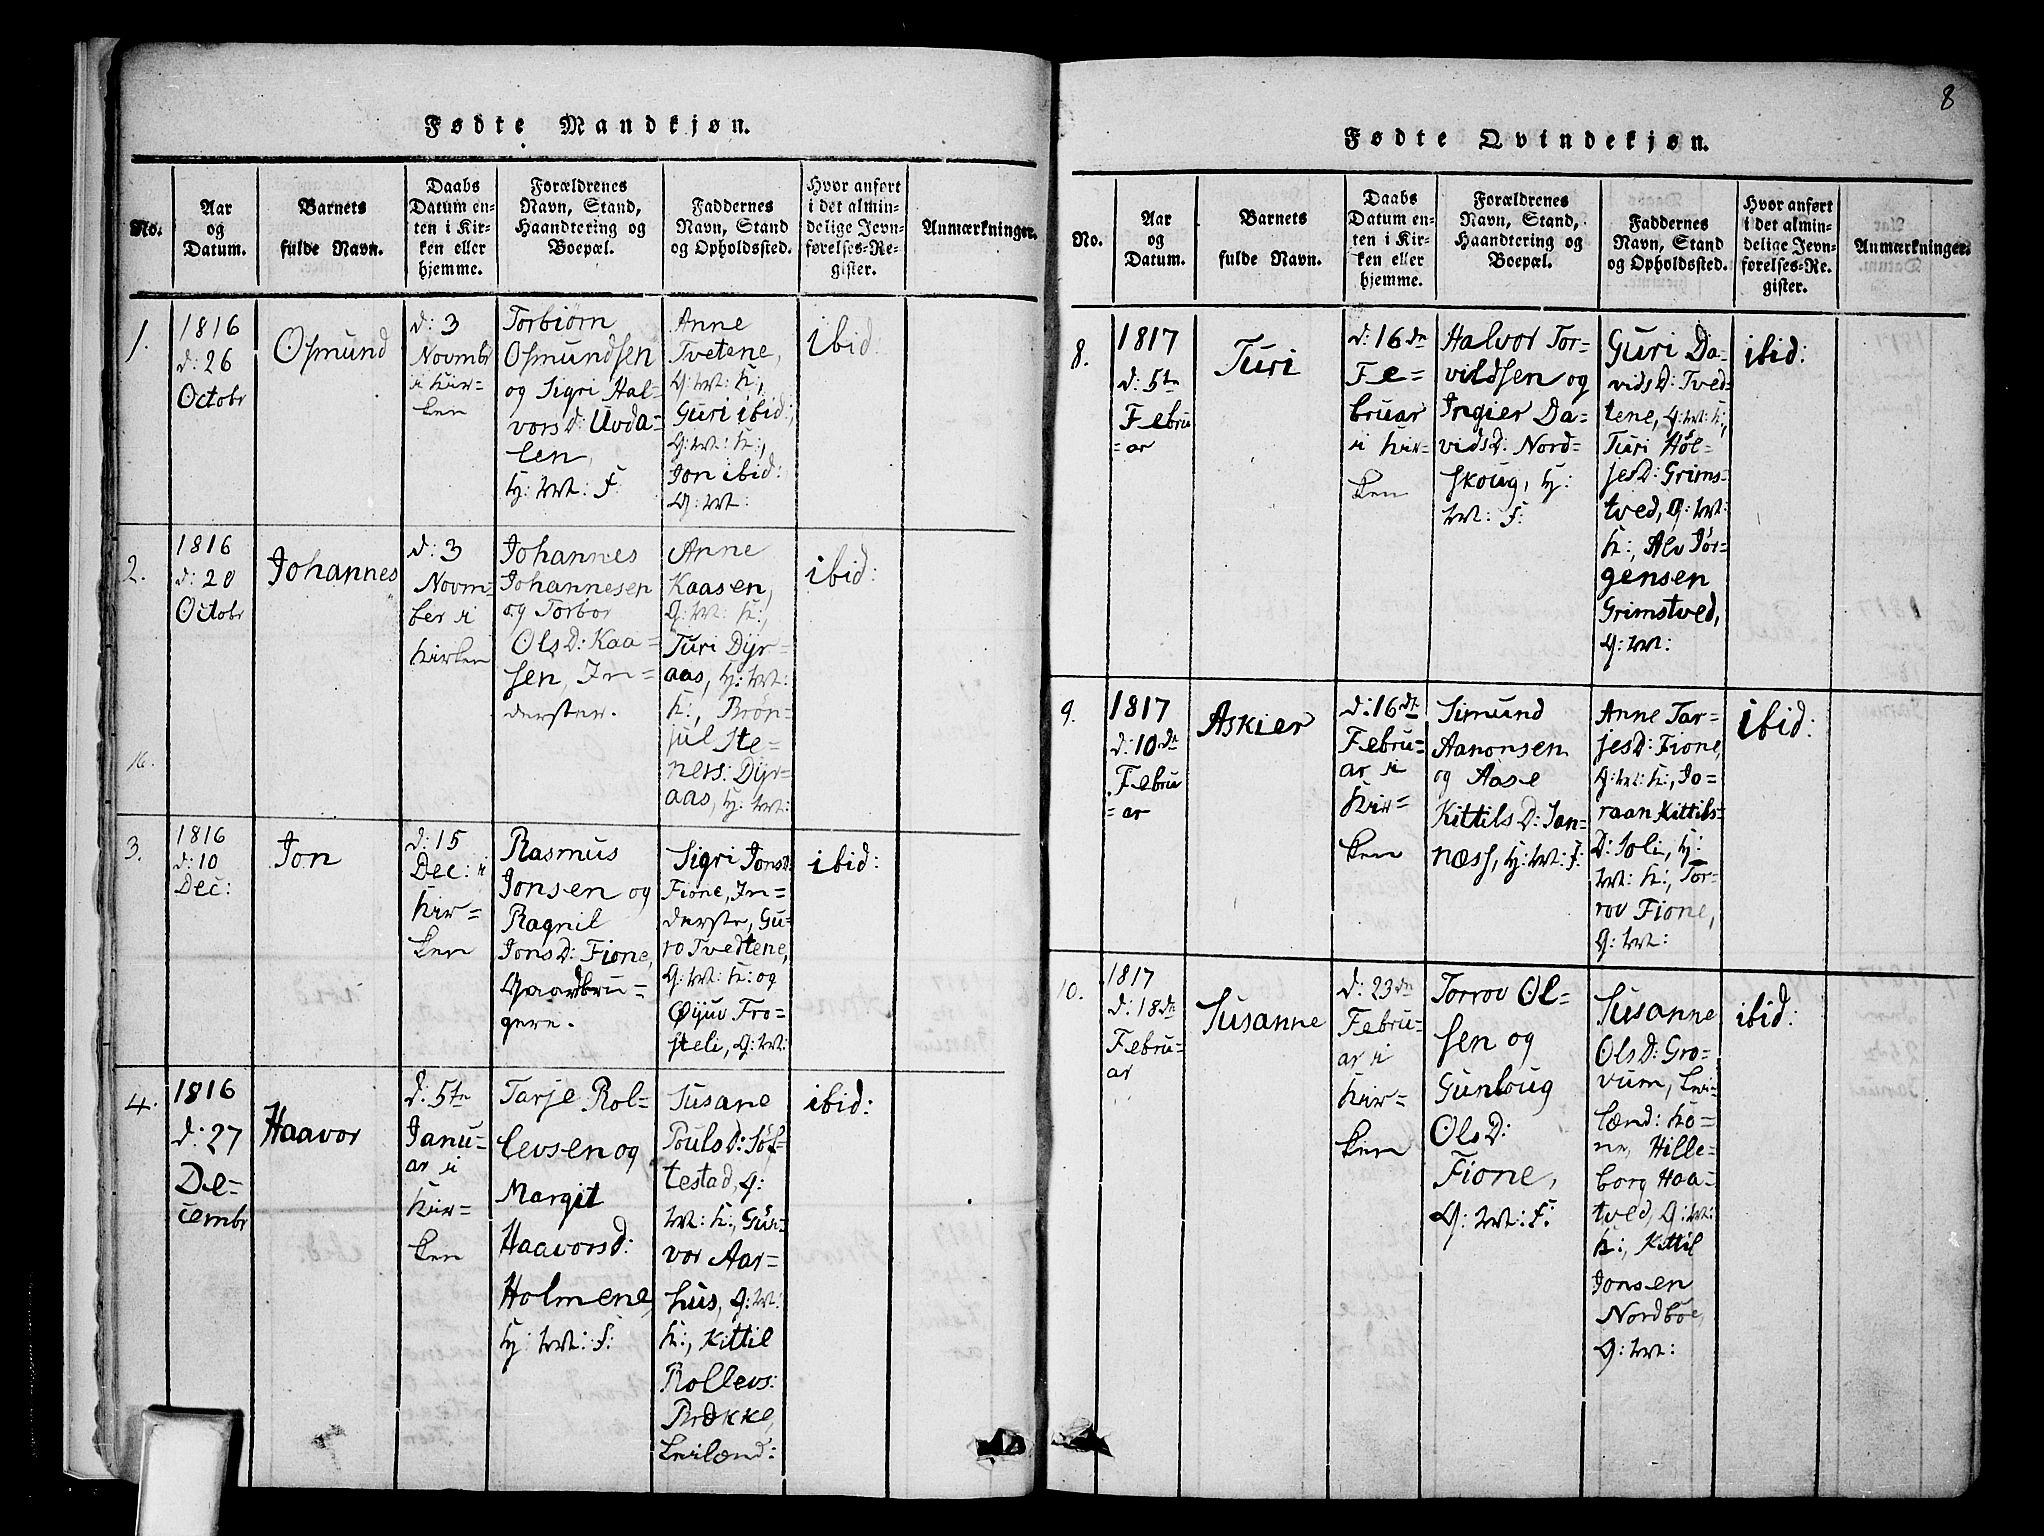 8
Fødte Mandkjøn.
No.
Aar
og
Datum.
Barnets
fulde Navn.
Daabs
Datum en=
ten i Kir=
ken eller
hjemme.
Forældrenes
Navn, Stand,
Haandtering og
Boepæl.
Faddernes
Navn, Stand
og Opholdssted.
Hvor anført
i det almin=
delige Jevn=
førelses=Re=
gister.
Anmærkninger.
1.
1816
d: 26
Octobr
Osmund
d: 3
Novmbr
i Kir=
ken
Torbiørn
Osmundsen
og Sigri Hal=
vorsD: Uvda=
len,
Anne
Tvetene,
Guri ibid:,
Jon ibid:
ibid:
2.
1816
d: 20
Octobr
Johannes
d: 3
Novm=
ber i
Kirken
Johannes
Johannesen
og Torbor
OlsD: Kaa=
sen, In=
derster.
Anne
Kaasen,
Turi Dyr=
aas,
Brøn=
jul Ste=
ners: Dyr=
aas,
ibid:
16.
3.
1816
d: 10
Dec:
Jon
d: 15
Dec: i
Kir=
ken
Rasmus
Jonsen og
Ragnil
JonsD: Fione,
Gaardbru=
gere.
Sigri JonsD:
Fione, In=
derste, Gu=
ro Tvedtene,
Øijuv Fro=
steli,
ibid:
4.
1816
d: 27
De=
cembr
Haavor
d: 5te
Janu=
ar i
Kir=
ken
Tarje Rol=
levsen og
Margit
Haavorsd:
Holmene,
Susane
Poulsd: Søf=
testad,
vor Aar=
hus,
Kittil
Rollevs:
Brække,
ibid:
Fødte Qvindekjøn.
No.
Aar
og
Datum.
Barnets
fulde Navn.
Daabs
Datum en=
ten i Kir=
ken eller
hjemme.
Forældrenes
Navn, Stand,
Haandtering og
Boepæl.
Faddernes
Navn, Stand
og Opholdssted.
Hvor anført
i det almin=
delige Jevn=
førelses=Re=
gister.
Anmærkninger.
8.
1817
d: 5te
Febru
=ar
Turi
d: 16de
Fe=
bruar
i Kir=
ken
Halvor Tor=
vildsen og
Ingier Da=
vidsD: Nord=
skoug,
Guri Da=
vidsD: Tved=
tene,
Turi Høl=
jesD: Grims=
tved,
Alv Jør=
gensen
Grimstved,
ibid:
9.
1817
d: 10de
Febru
=ar
Askier
d: 16de
Febru=
ar i
Kir=
ken
Simund
Aanonsen
og Aase
KittilsD: Jan=
næss,
Anne Tar=
jesD: Fione,
Jo=
raan Kittils=
D: Joli,
Tor=
rov Fione,
ibid:
10.
1817
d: 18de
Febru=
ar
Susanne
d: 23de
Febru=
ar i
Kir=
ken
Torrov Ol=
sen og
Gunloug
OlsD:
Fione,
Susanne
OlsD: Gro=
vum,
Hille=
borg Haa=
tved,
Kittil
Jonsen
Nordbøe,
ibid: